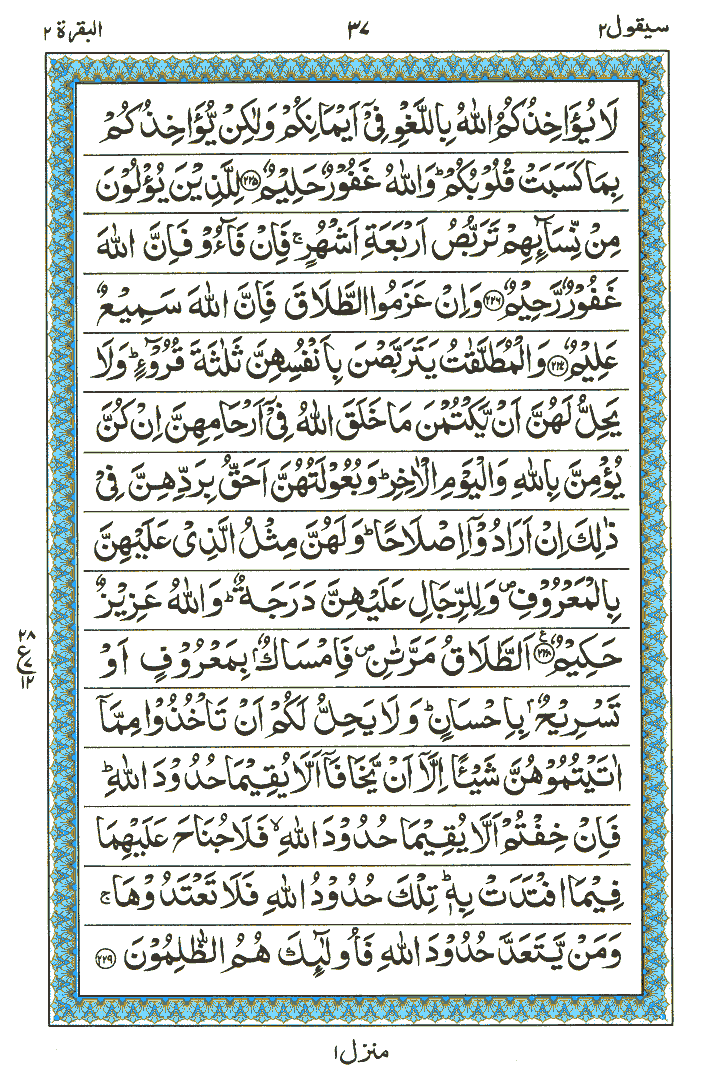 سيقول ٢ ٣٧ البقرة ٢
لَا يُؤَاخِذُكُمُ اللّٰهُ بِاللَّغْوِ فِىْٓ اَيْمَانِكُمْ وَلٰكِنْ يُّؤَاخِذُكُمْ
بِمَا كَسَبَتْ قُلُوْبُكُمْ ؕ وَاللّٰهُ غَفُوْرٌ حَلِيْمٌ ﴿٢٢٥﴾ لِلَّذِيْنَ يُؤْلُوْنَ
مِنْ نِّسَآئِهِمْ تَرَبُّصُ اَرْبَعَةِ اَشْهُرٍ ۚ فَاِنْ فَآءُوْ فَاِنَّ اللّٰهَ
غَفُوْرٌ رَّحِيْمٌ ﴿٢٢٦﴾ وَاِنْ عَزَمُوا الطَّلَاقَ فَاِنَّ اللّٰهَ سَمِيْعٌ
عَلِيْمٌ ﴿٢٢٧﴾ وَالْمُطَلَّقٰتُ يَتَرَبَّصْنَ بِاَنْفُسِهِنَّ ثَلٰثَةَ قُرُوْٓءٍ ؕ وَلَا
يَحِلُّ لَهُنَّ اَنْ يَّكْتُمْنَ مَا خَلَقَ اللّٰهُ فِىْٓ اَرْحَامِهِنَّ اِنْ كُنَّ
يُؤْمِنَّ بِاللّٰهِ وَالْيَوْمِ الْاٰخِرِ ؕ وَبُعُوْلَتُهُنَّ اَحَقُّ بِرَدِّهِنَّ فِىْ
ذٰلِكَ اِنْ اَرَادُوْٓا اِصْلَاحًا ؕ وَلَهُنَّ مِثْلُ الَّذِىْ عَلَيْهِنَّ
بِالْمَعْرُوْفِ ۪ وَلِلرِّجَالِ عَلَيْهِنَّ دَرَجَةٌ ؕ وَاللّٰهُ عَزِيْزٌ
حَكِيْمٌ ﴿٢٢٨﴾ ع اَلطَّلَاقُ مَرَّتٰنِ ۪ فَاِمْسَاكٌۢ بِمَعْرُوْفٍ اَوْ
تَسْرِيْحٌۢ بِاِحْسَانٍ ؕ وَلَا يَحِلُّ لَكُمْ اَنْ تَاْخُذُوْا مِمَّآ
اٰتَيْتُمُوْهُنَّ شَيْـًٔا اِلَّآ اَنْ يَّخَافَآ اَلَّا يُقِيْمَا حُدُوْدَ اللّٰهِ ؕ
فَاِنْ خِفْتُمْ اَلَّا يُقِيْمَا حُدُوْدَ اللّٰهِ ۙ فَلَا جُنَاحَ عَلَيْهِمَا
فِيْمَا افْتَدَتْ بِهٖ ؕ تِلْكَ حُدُوْدُ اللّٰهِ فَلَا تَعْتَدُوْهَا ۚ
وَمَنْ يَّتَعَدَّ حُدُوْدَ اللّٰهِ فَاُولٰٓئِكَ هُمُ الظّٰلِمُوْنَ ﴿٢٢٩﴾
٢٨
ع ٧
١٢
منزل ١